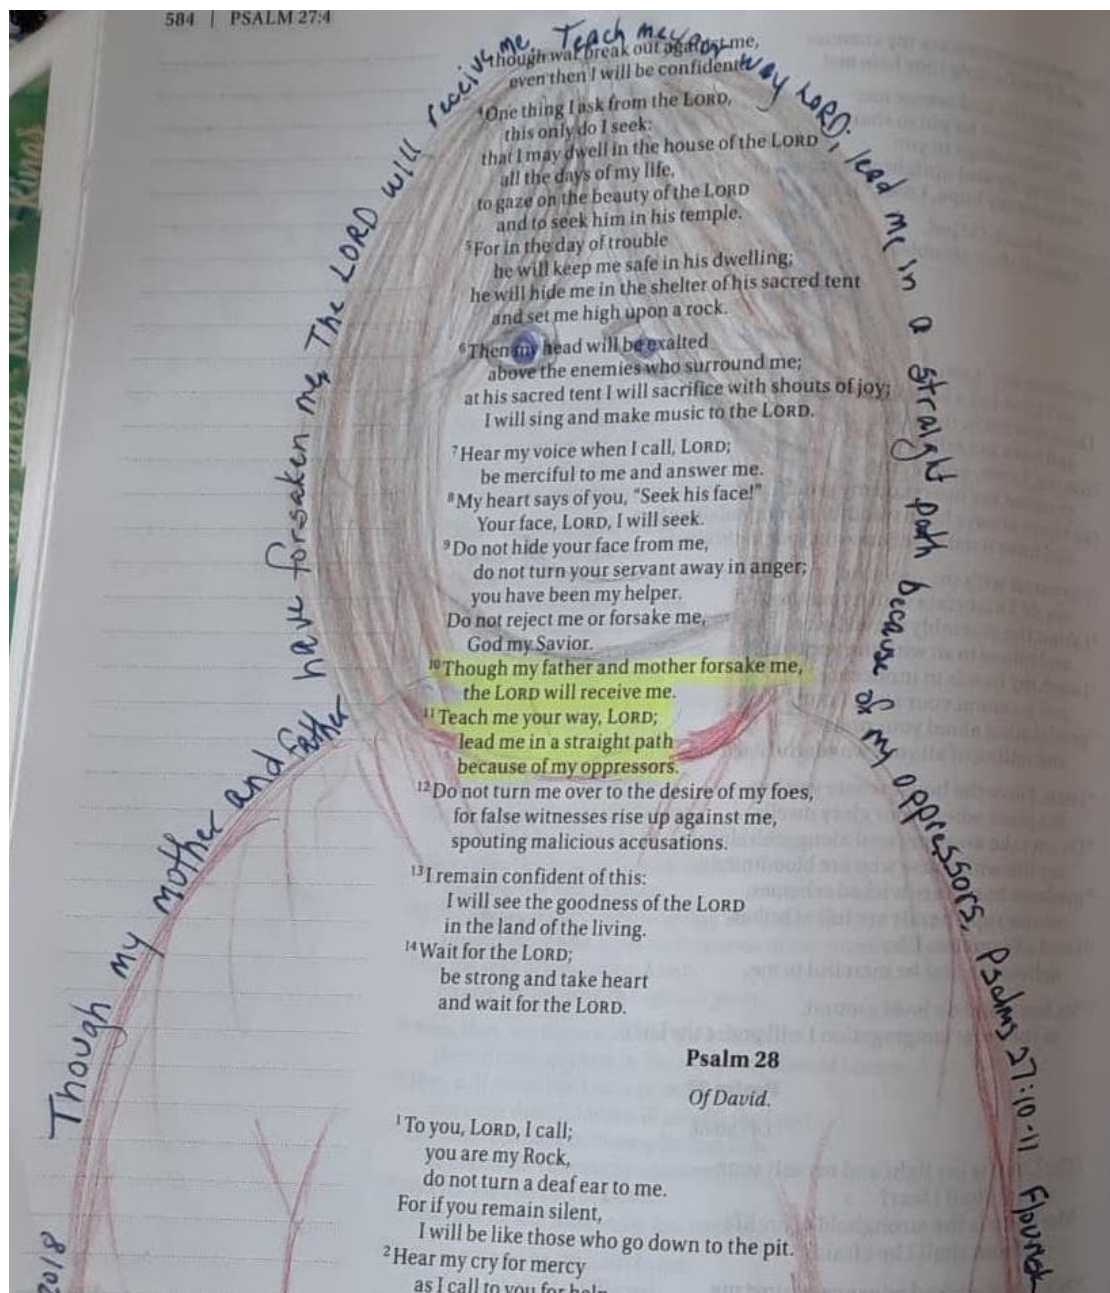 584 | PSALM 27:4
though war break out against me,
even then I will be confident.
4 One thing I ask from the LORD,
this only do I seek:
that I may dwell in the house of the LORD
all the days of my life,
to gaze on the beauty of the LORD
and to seek him in his temple.
5 For in the day of trouble
he will keep me safe in his dwelling;
he will hide me in the shelter of his sacred tent
and set me high upon a rock.
6 Then my head will be exalted
above the enemies who surround me;
at his sacred tent I will sacrifice with shouts of joy;
I will sing and make music to the LORD.
7 Hear my voice when I call, LORD;
be merciful to me and answer me.
8 My heart says of you, "Seek his face!"
Your face, LORD, I will seek.
9 Do not hide your face from me,
do not turn your servant away in anger;
you have been my helper.
Do not reject me or forsake me,
God my Savior.
10 Though my father and mother forsake me,
the LORD will receive me.
11 Teach me your way, LORD;
lead me in a straight path
because of my oppressors.
12 Do not turn me over to the desire of my foes,
for false witnesses rise up against me,
spouting malicious accusations.
13 I remain confident of this:
I will see the goodness of the LORD
in the land of the living.
14 Wait for the LORD;
be strong and take heart
and wait for the LORD.
Psalm 28
Of David.
1 To you, LORD, I call;
you are my Rock,
do not turn a deaf ear to me.
For if you remain silent,
I will be like those who go down to the pit.
2 Hear my cry for mercy
as I call to you for help
Though my mother and father have forsaken me, The LORD will receive me. Teach me your way LORD; lead me in a straight path because of my oppressors. Psalms 27:10-11
2018
Kings